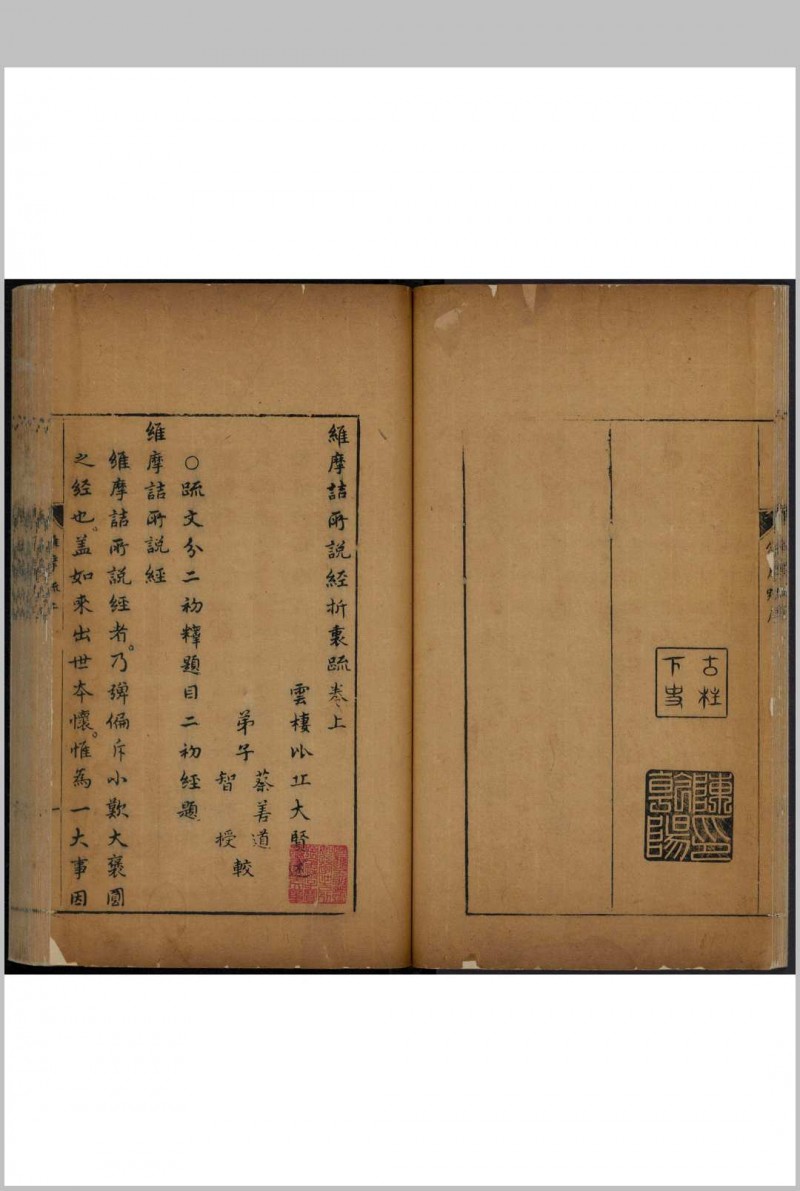 古柱
下史
維摩詰所說經折衷疏卷上
雲棲比丘大賢述
蔡善道
弟子
智授
較
○疏文分二初釋題目二初經題
維摩詰所說經
維摩詰所說經者。乃彈偏斥小歎大褒圓
之経也。盖如來出世本懷。惟為一大事因
一